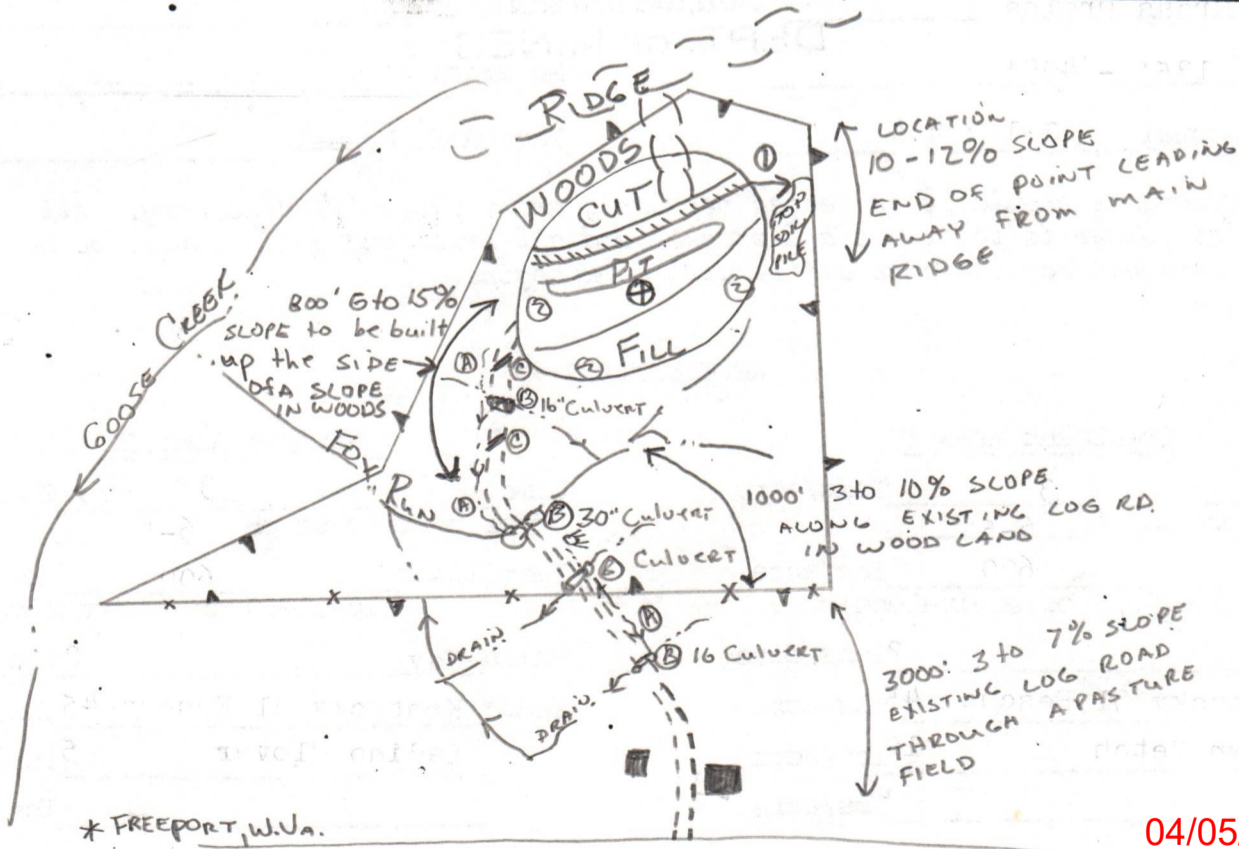 RIDGE
WOODS
CUT
PIT
FILL
①
TOP
SOIL
PILE
②
②
②
LOCATION
10-12% SLOPE
END OF POINT LEADING
AWAY FROM MAIN
RIDGE
GOOSE CREEK
800' 6 to 15%
SLOPE to be built
up the SIDE
OF A SLOPE
IN WOODS
Ⓐ
Ⓒ
Ⓑ 16" Culvert
Ⓒ
Ⓐ
FOX RUN
Ⓑ 30" Culvert
Culvert
1000' 3 to 10% SLOPE
ALONG EXISTING LOG RD.
IN WOOD LAND
Ⓐ
Ⓑ 16 Culvert
DRAIN
DRAIN
3000: 3 to 7% SLOPE
EXISTING LOG ROAD
THROUGH A PASTURE
FIELD
* FREEPORT, W.VA.